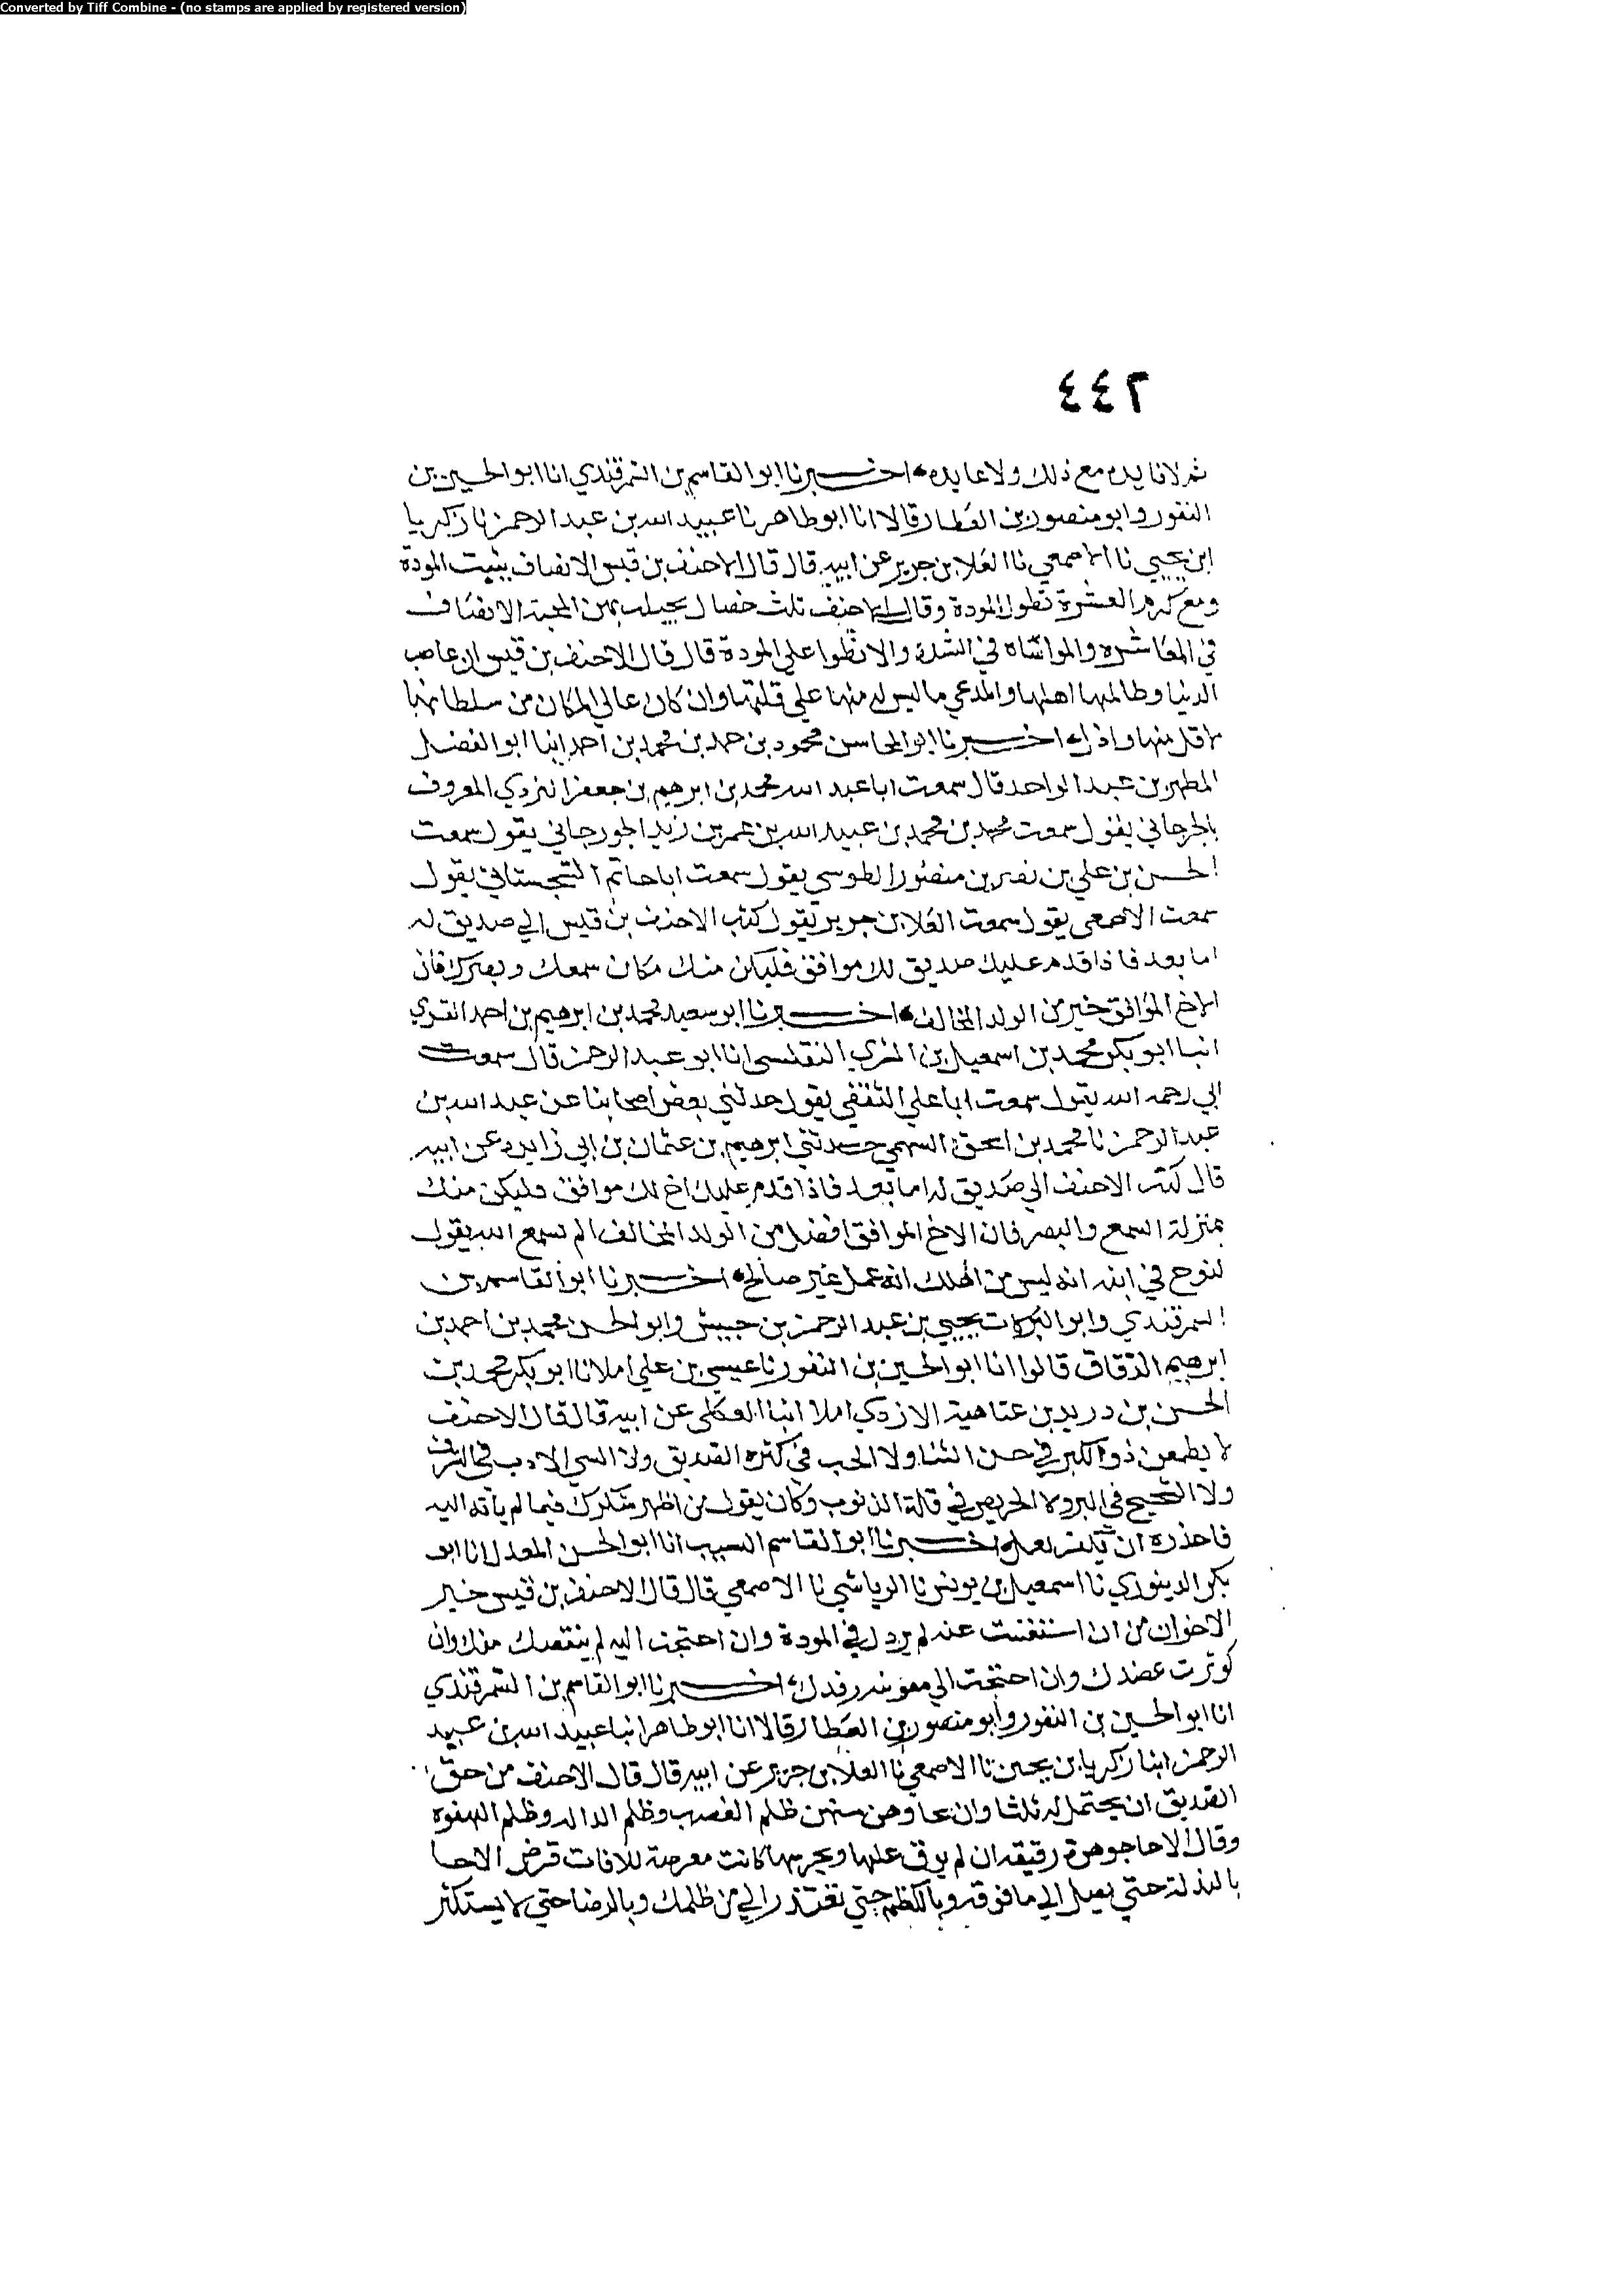 Converted by Tiff Combine - (no stamps are applied by registered version)
٤٤٢
ثم لا نا يده مع ذلك ولا عايده اخبرنا ابو القاسم بن السمرقندي انا ابو الحسين بن
النقور وابو منصور بن العطار قالا انا ابو طاهر نا عبيد الله بن عبد الرحمن نا زكريا
ابن يحيي نا الاصمعي نا العلا بن جرير عن ابيه قال قال الاحنف بن قيس الانصاف يثبت المودة
ومع كرم العشرة تطول المودة وقال الاحنف ثلث خصال يجتلب بهن المحبة الانصاف
في المعاشره والمواساه في الشدة والانطوا علي المودة قال قال الاحنف بن قيس ان عاصب
الدنيا وظالمها اهلها والمدعي ما ليس له منها علي قلتها وان كان عالي المكان من سلطانها
لاقل منها واذل اخبرنا ابو المحاسن محمود بن حمد بن محمد بن احمد انبا ابو الفضل
المطهر بن عبد الواحد قال سمعت ابا عبد الله محمد بن ابرهيم بن جعفر اليزدي المعروف
بالجرجاني يقول سمعت محمد بن محمد بن عبيد الله بن عمر بن زيد الجورجاني يقول سمعت
الحسن بن علي بن نصر بن منصور الطوسي يقول سمعت ابا حاتم السجستاني يقول
سمعت الاصمعي يقول سمعت العلا بن جرير يقول كتب الاحنف بن قيس الي صديق له
اما بعد فاذا قدم عليك صديق لك موافق فليكن منك مكان سمعك وبصرك فان
الاخ الموافق خير من الولد المخالف اخبرنا ابو سعيد محمد بن ابرهيم بن احمد
انبا ابو بكر محمد بن اسمعيل بن السري التفليسي انا ابو عبد الرحمن قال سمعت
ابي رحمه الله يقول سمعت ابا علي الثقفي يقول حدثني بعض اصحابنا عن عبد الله بن
عبد الرحمن نا محمد بن اسحق السهمي حدثني ابرهيم بن عثمان بن ابي زايده عن ابيه
قال كتب الاحنف الي صديق له اما بعد فاذا قدم عليك اخ لك موافق فليكن منك
بمنزلة السمع والبصر فان الاخ الموافق افضل من الولد المخالف الم تسمع الله يقول
لنوح في ابنه انه ليس من اهلك انه عمل غير صالح اخبرنا ابو القاسم بن
السمرقندي وابو البركات يحيي بن عبد الرحمن بن حبيش وابو الحسن محمد بن احمد بن
ابرهيم الدقاق قالوا انا ابو الحسين بن النقور نا عيسي بن علي املا نا ابو بكر محمد بن
الحسن بن دريد بن عتاهية الازدي املا انبا العكلي عن ابيه قال قال الاحنف
لا يطمعن ذو الكبر في حسن الثنا ولا الخب في كثرة الصديق ولا السي الادب في الشرف
ولا الشحيح في البر ولا الحريص في قلة الذنوب وكان يقول من اظهر شكرك فيما لم ياته اليه
فاحذره ان يكفر اخبرنا ابو القاسم النسيب انا ابو الحسن المعدل انا ابو
بكر الدينوري نا اسمعيل بن يونس نا الرياشي نا الاصمعي قال قال الاحنف بن قيس خير
الاخوان من ان استغنيت عنه لم يزدك في المودة وان احتجت اليه لم ينتقصك منك وان
كوثرت عضدك وان احتجت الي معونته رفدك اخبرنا ابو القاسم بن السمرقندي
انا ابو الحسين بن النقور وابو منصور بن العطار قالا انا ابو طاهر انبا عبيد الله بن عبيد
الرحمن انبا زكريا بن يحيي نا الاصمعي نا العلا بن جرير عن ابيه قال قال الاحنف من حق
الصديق ان يحتمل له ثلثا وان ظلم الغضب وظلم الداله وظلم الهفوه
وقال الاخا جوهرة رقيقه ان لم يوق عليها كانت معرضة للافات الاخا
بالبذلة حتي يصل الي ما فوقه وبالكظم حتي تعتذر الي من ظلمك وبالرضا حتي لا يستكثر